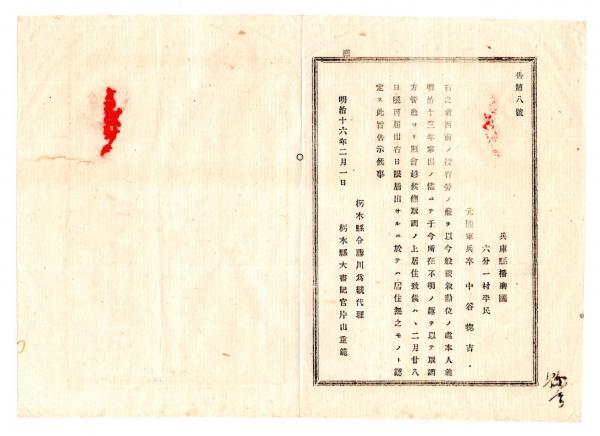 告第八號
兵庫縣播磨國
六分一村平民
元陸軍兵卒 中谷 吉
右之者西南ノ役有勞ノ廉ヲ以今般被叙勳位ノ處本人義
明治十三年家出ノ儘ニテ于今所在不明ノ趣ヲ以テ取調
方管廳ヨリ照會越候條取調ノ上居住致儀ハヽ二月廿八
日限可届出右日限届出サルニ於テハ居住無之モノト認
定ス此旨告示候事
明治十六年二月一日
栃木縣令藤川爲親代理
栃木縣大書記官片山重範